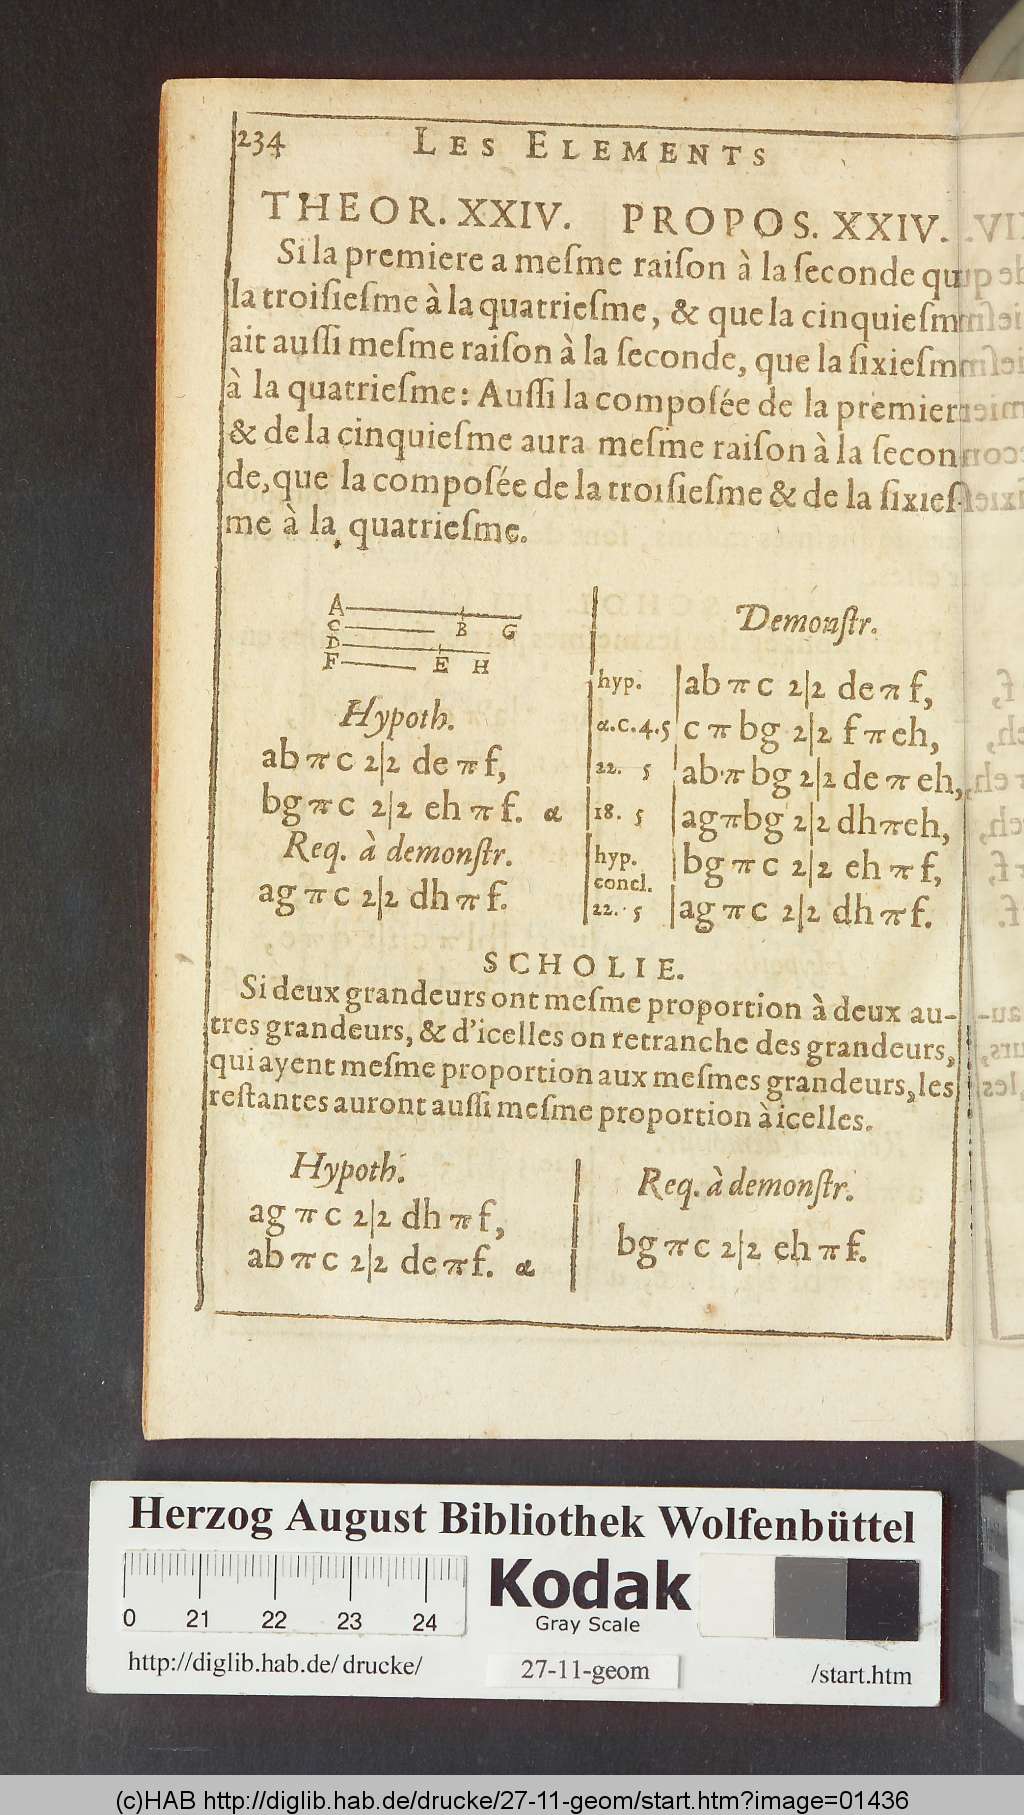 234 LES ELEMENTS
THEOR. XXIV. PROPOS. XXIV.
Si la premiere a meſme raiſon à la ſeconde que
la troiſieſme à la quatrieſme, & que la cinquieſme
ait auſſi meſme raiſon à la ſeconde, que la ſixieſme
à la quatrieſme: Auſſi la compoſée de la premiere
& de la cinquieſme aura meſme raiſon à la ſecon-
de, que la compoſée de la troiſieſme & de la ſixieſ-
me à la quatrieſme.
A B G
C
D E H
F
Hypoth.
ab π c 2|2 de π f,
bg π c 2|2 eh π f. α
Req. à demonſtr.
ag π c 2|2 dh π f.
Demonſtr.
hyp. | ab π c 2|2 de π f,
α.c.4.5 | c π bg 2|2 f π eh,
22. 5 | ab π bg 2|2 de π eh,
18. 5 | ag π bg 2|2 dh π eh,
hyp. | bg π c 2|2 eh π f,
concl.
22. 5 | ag π c 2|2 dh π f.
SCHOLIE.
Si deux grandeurs ont meſme proportion à deux au-
tres grandeurs, & d'icelles on retranche des grandeurs,
qui ayent meſme proportion aux meſmes grandeurs, les
reſtantes auront auſſi meſme proportion à icelles.
Hypoth.
ag π c 2|2 dh π f,
ab π c 2|2 de π f. α
Req. à demonſtr.
bg π c 2|2 eh π f.
Herzog August Bibliothek Wolfenbüttel
0 21 22 23 24
Kodak
Gray Scale
http://diglib.hab.de/drucke/ 27-11-geom /start.htm
(c)HAB http://diglib.hab.de/drucke/27-11-geom/start.htm?image=01436